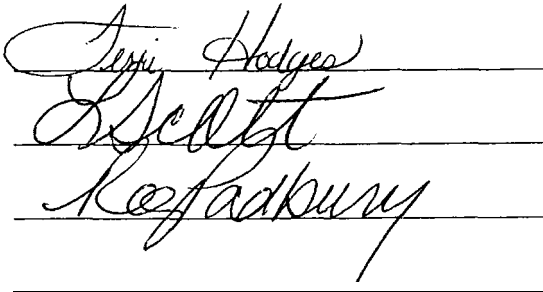 Terri Hodges
L Scott
Roe Padbury